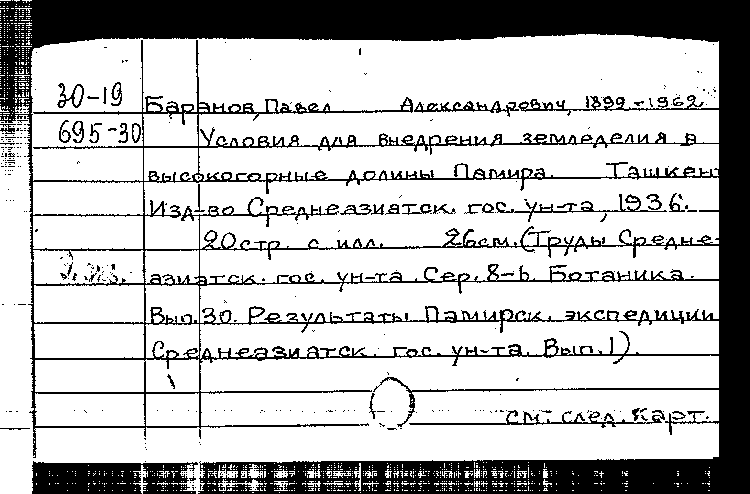 30-19 Баранов, Павел Александрович, 1892-1962
695-30 Условия для внедрения земледелия в
высокогорные долины Памира. Ташкен
Изд-во Среднеазиатск. гос. ун-та, 1936.
20стр. с илл. 26см. (Труды Средне-
азиатск. гос. ун-та. Сер. 8-b. Ботаника.
Вып. 30. Результаты Памирск. экспедиции
Среднеазиатск. гос. ун-та. Вып. 1).
см. след. карт.